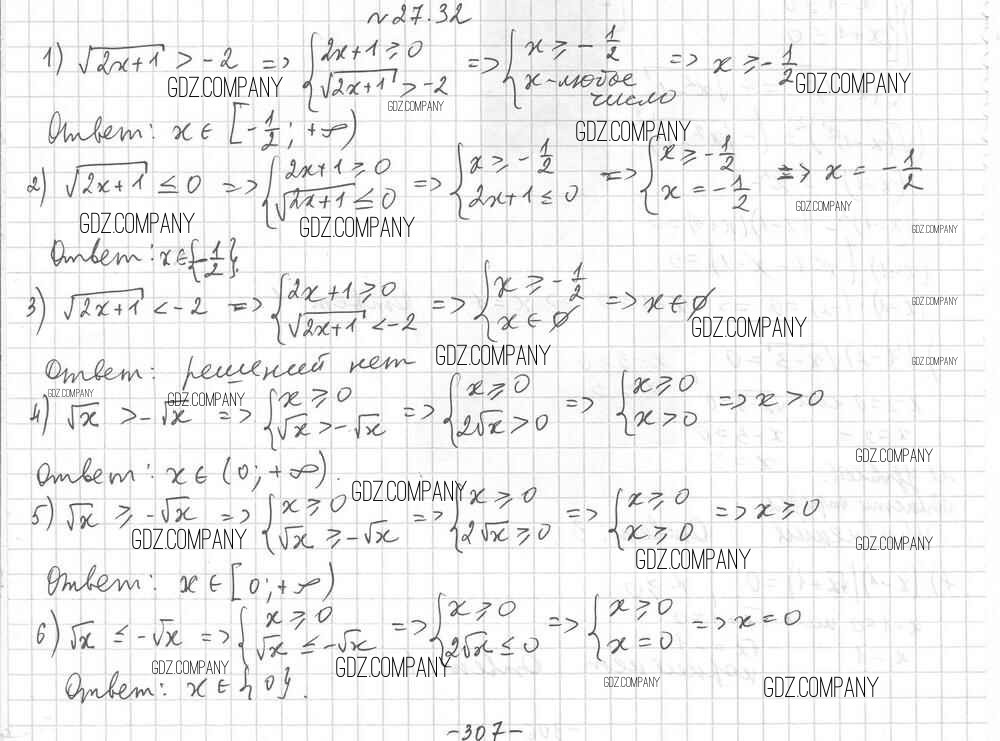 №27.32
1) √(2x+1) > -2 => { 2x+1 ≥ 0; √(2x+1) > -2 => { x ≥ -1/2; x - любое число => x ≥ -1/2
GDZ.COMPANY GDZ.COMPANY GDZ.COMPANY
Ответ: x ∈ [-1/2; +∞)
GDZ.COMPANY
2) √(2x+1) ≤ 0 => { 2x+1 ≥ 0; √(2x+1) ≤ 0 => { x ≥ -1/2; 2x+1 ≤ 0 => { x ≥ -1/2; x = -1/2 => x = -1/2
GDZ.COMPANY GDZ.COMPANY GDZ.COMPANY GDZ.COMPANY
Ответ: x ∈ {-1/2}.
3) √(2x+1) < -2 => { 2x+1 ≥ 0; √(2x+1) < -2 => { x ≥ -1/2; x ∈ ∅ => x ∈ ∅
GDZ.COMPANY GDZ.COMPANY
Ответ: решений нет
GDZ.COMPANY GDZ.COMPANY
GDZ.COMPANY GDZ.COMPANY
4) √x > -√x => { x ≥ 0; √x > -√x => { x ≥ 0; 2√x > 0 => { x ≥ 0; x > 0 => x > 0
GDZ.COMPANY
Ответ: x ∈ (0; +∞).
GDZ.COMPANY
5) √x ≥ -√x => { x ≥ 0; √x ≥ -√x => { x ≥ 0; 2√x ≥ 0 => { x ≥ 0; x ≥ 0 => x ≥ 0
GDZ.COMPANY GDZ.COMPANY GDZ.COMPANY
Ответ: x ∈ [0; +∞)
6) √x ≤ -√x => { x ≥ 0; √x ≤ -√x => { x ≥ 0; 2√x ≤ 0 => { x ≥ 0; x = 0 => x = 0
GDZ.COMPANY GDZ.COMPANY GDZ.COMPANY GDZ.COMPANY
Ответ: x ∈ {0}.
-307-